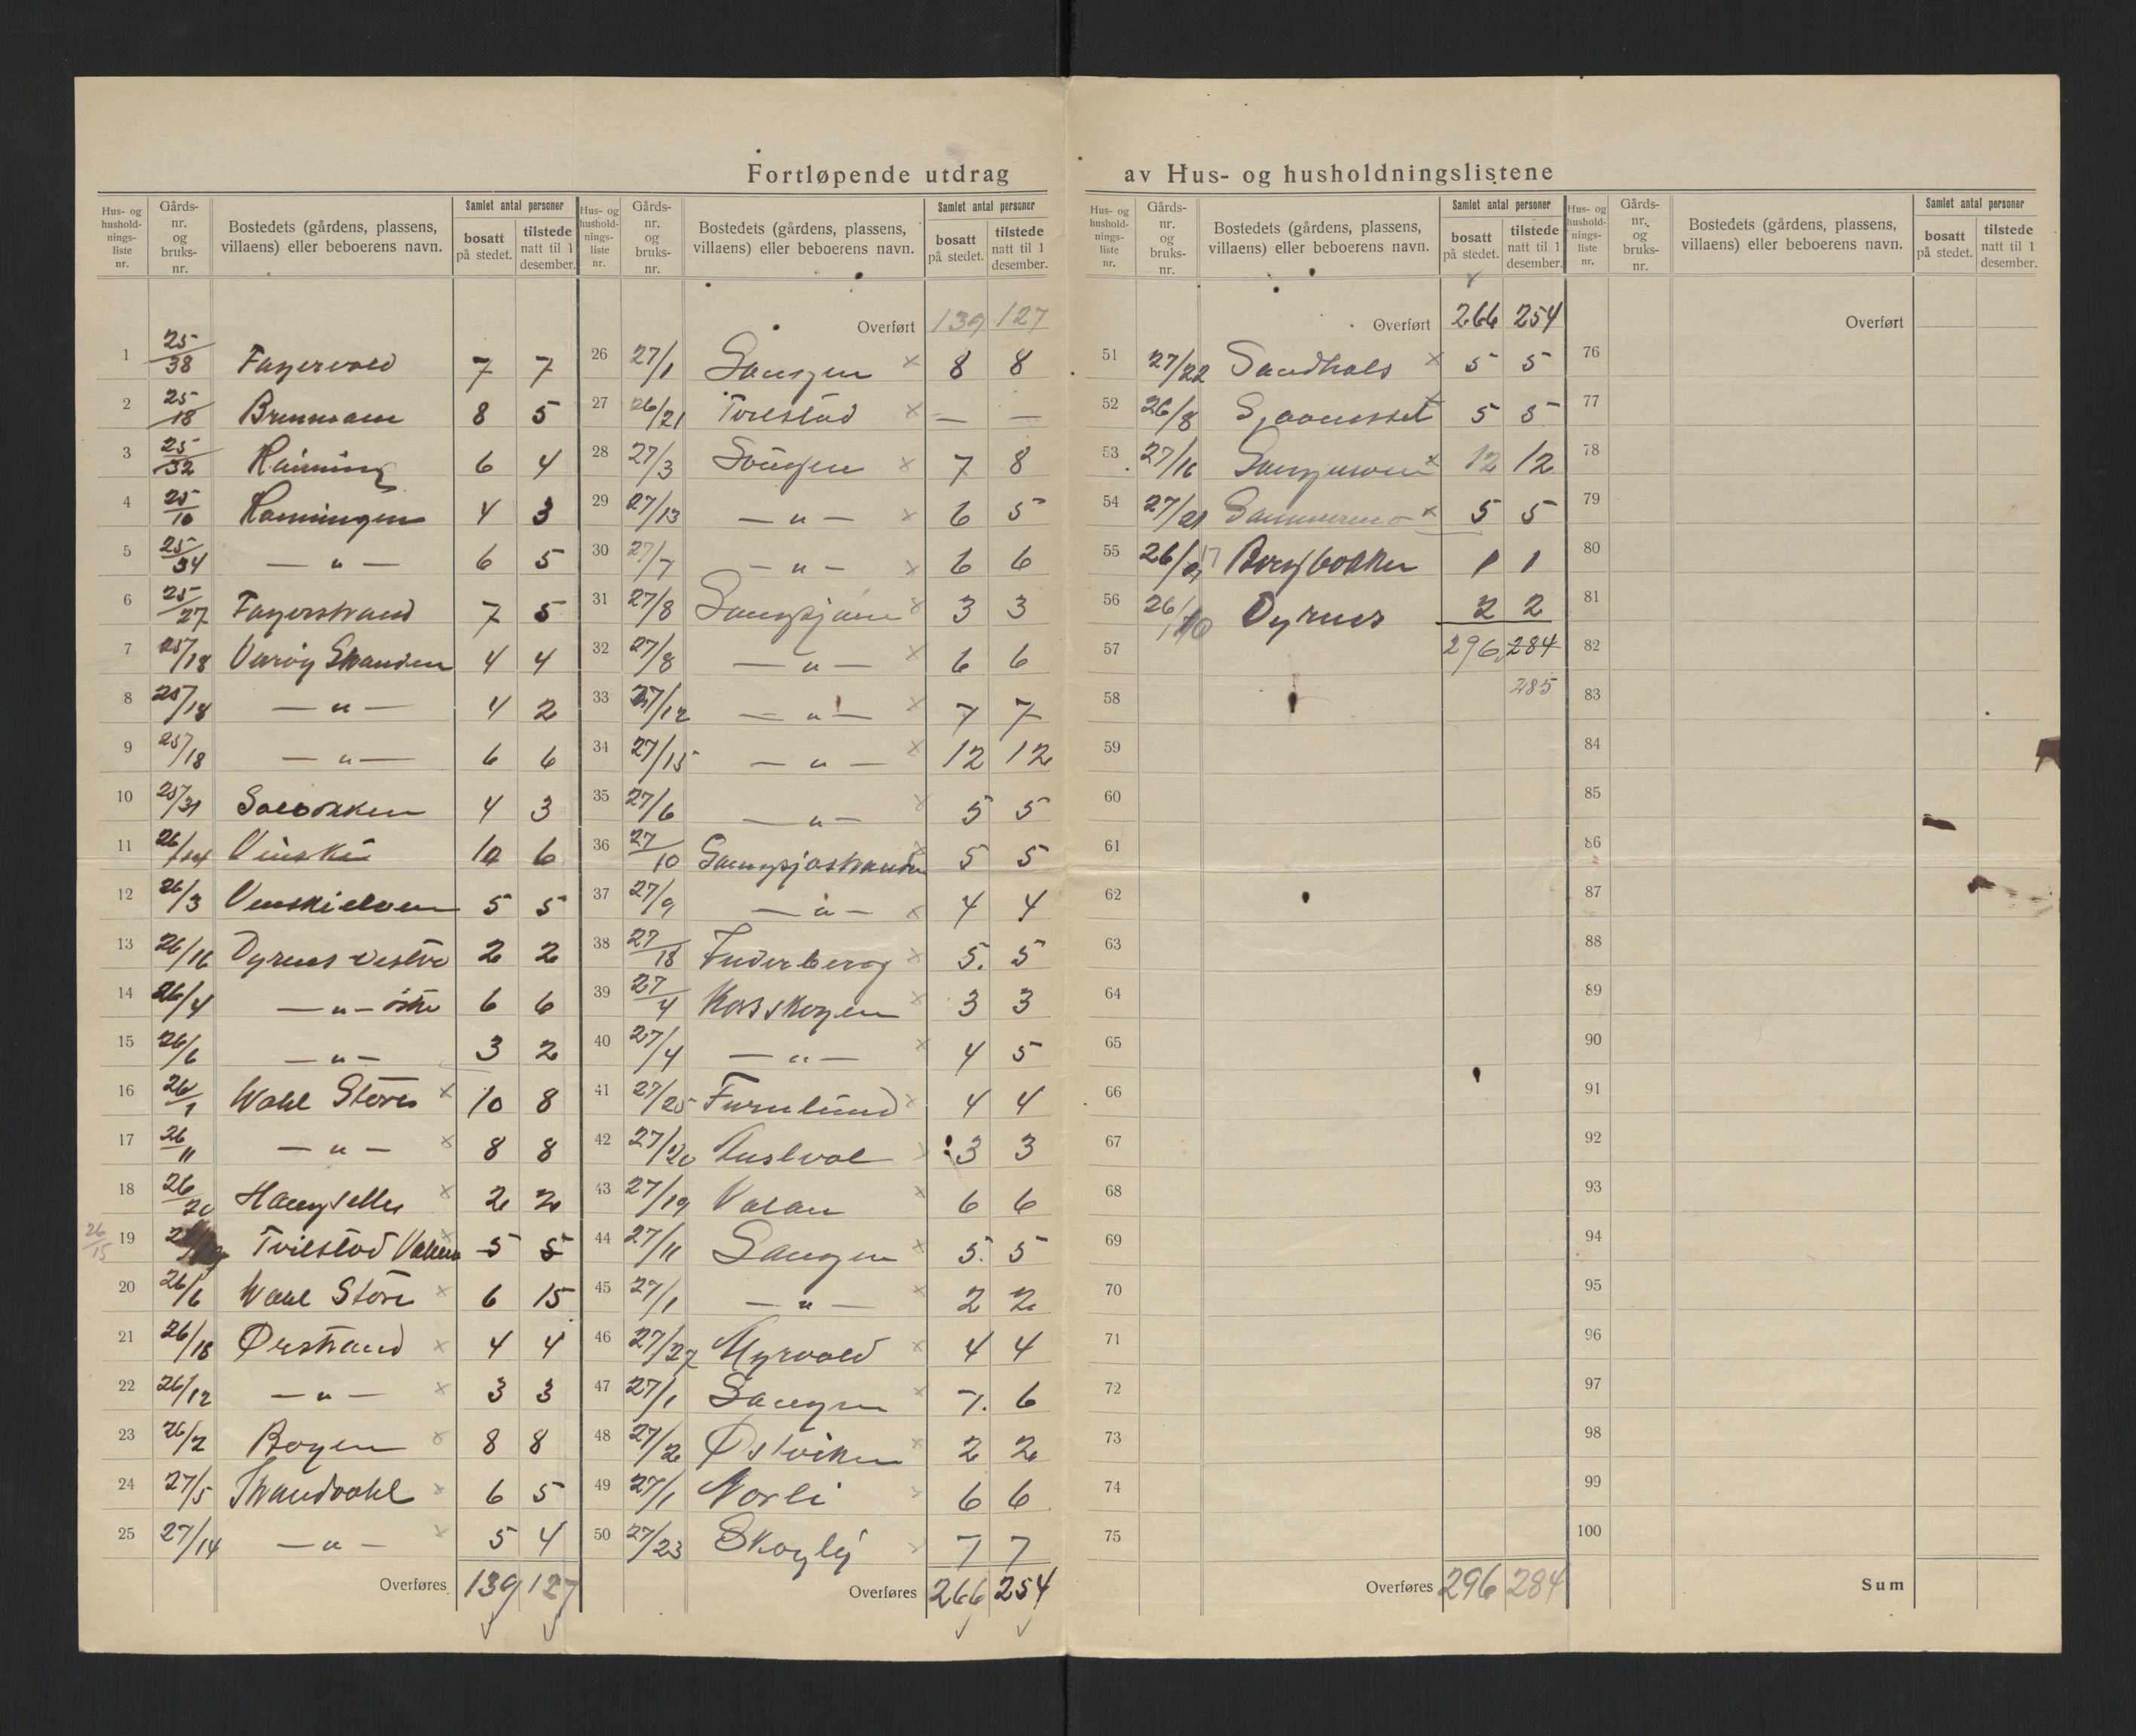 Fortløpende utdrag av Hus- og husholdningslistene
Hus- og hushold-nings-liste nr. Gårds-nr. og bruks-nr. Bostedets (gårdens, plassens, villaens) eller beboerens navn. Samlet antal personer bosatt på stedet. tilstede natt til 1 desember.
1 25/38 Fagervold 7 7
2 25/18 8 5
3 25/32 6 4
4 25/10 4 3
5 25/34 — " — 6 5
6 25/27 Fagerstrand 7 5
7 25/18 4 4
8 25/18 — " — 4 2
9 25/18 — " — 6 6
10 25/31 4 3
11 26/14 6
12 26/3 Vinskielven 5 5
13 26/16 Dyrnes vestre 2 2
14 26/4 — " — östre 6 6
15 26/6 — " — 3 2
16 26/1 Wahl Störe × 10 8
17 26/11 — " — × 8 8
18 26/20 × 2 2
26/15
19 × 5 5
20 26/6 Wahl Störe × 6 15
21 26/18 Ørstrand × 4 4
22 26/12 — " — × 3 3
23 26/2 Bogen × 8 8
24 27/5 Strandvahl × 6 5
25 27/14 — " — × 5 4
Overføres 139 127
Hus- og hushold-nings-liste nr. Gårds-nr. og bruks-nr. Bostedets (gårdens, plassens, villaens) eller beboerens navn. Samlet antal personer bosatt på stedet. tilstede natt til 1 desember.
Overført 139 127
26 27/1 Saugen × 8 8
27 26/21 × — —
28 27/3 Saugen × 7 8
29 27/13 — " — × 6 5
30 27/7 — " — × 6 6
31 27/8 3 3
32 27/8 — " — × 6 6
33 27/12 — " — × 7 7
34 27/15 — " — × 12 12
35 27/6 — " — × 5 5
36 27/10 × 5 5
37 27/9 — " — × 4 4
38 27/18 × 5. 5
39 27/4 Kosskogen × 3 3
40 27/4 — " — × 4 5
41 27/25 Furulund × 4 4
42 27/20 3 3
43 27/19 × 6 6
44 27/11 Saugen × 5. 5
45 27/1 — " — × 2 2
46 27/27 Myrvold × 4 4
47 27/1 Saugen × 7. 6
48 27/2 Østviken × 2 2
49 27/1 Norli × 6 6
50 27/23 Skogly × 7 7
Overføres 266 254
Hus- og hushold-nings-liste nr. Gårds-nr. og bruks-nr. Bostedets (gårdens, plassens, villaens) eller beboerens navn. Samlet antal personer bosatt på stedet. tilstede natt til 1 desember.
Overført 266 254
51 27/22 Sandhals × 5 5
52 26/8 5 5
53 27/16 × 12 12
54 27/21 × 5 5
55 Bergbakken 1 1
56 26/10 Dyrnes 2 2
57 296 284
58 285
59
60
61
62
63
64
65
66
67
68
69
70
71
72
73
74
75
Overføres 296 284
Hus- og hushold-nings-liste nr. Gårds-nr. og bruks-nr. Bostedets (gårdens, plassens, villaens) eller beboerens navn. Samlet antal personer bosatt på stedet. tilstede natt til 1 desember.
Overført
76
77
78
79
80
81
82
83
84
85
86
87
88
89
90
91
92
93
94
95
96
97
98
99
100
Sum